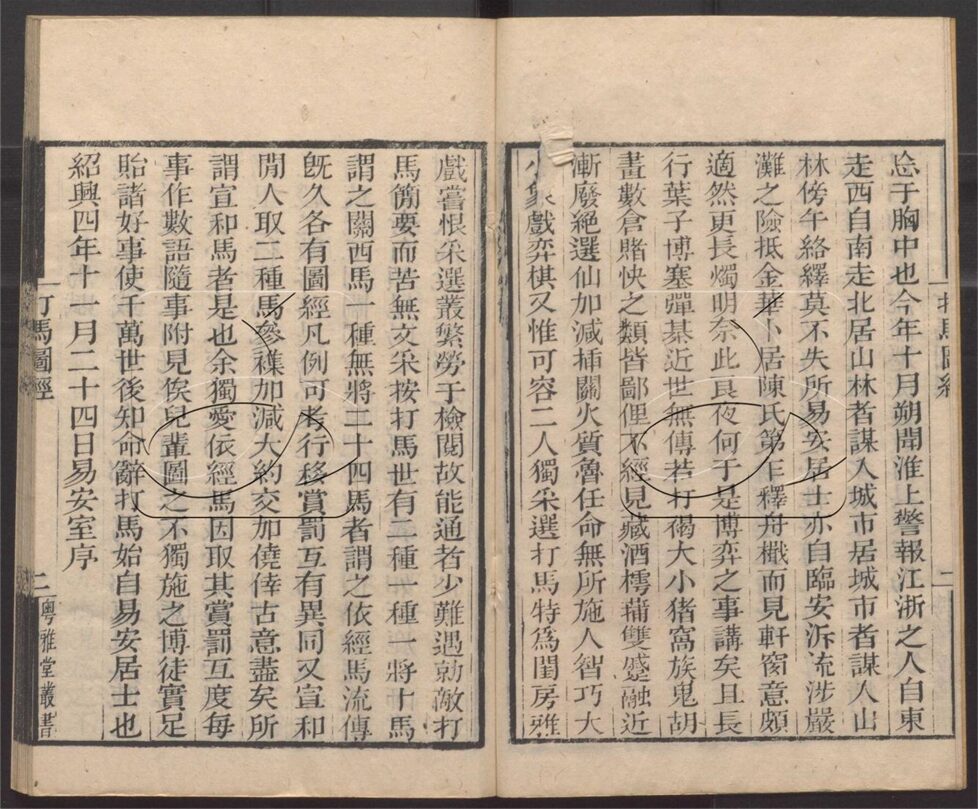 忘于胸中也今年十月朔聞淮上警報江浙之人自東
走西自南走北居山林者謀入城市居城市者謀入山
林傍午絡繹莫不失所易安居士亦自臨安泝流涉嚴
灘之險抵金華卜居陳氏第乍釋舟檝而見軒窗意頗
適然更長燭明奈此良夜何于是博弈之事講矣且長
行葉子博塞彈棊近世無傳若打褐大小猪窩族鬼胡
畫數倉賭快之類皆鄙俚不經見藏酒樗蒱雙蹙融近
漸廢絕選仙加減插關火質魯任命無所施人智巧大
小象戲弈棋又惟可容二人獨采選打馬特爲閨房雅
打馬圖經
二
戲嘗恨采選叢繁勞于檢閱故能通者少難遇勍敵打
馬簡要而苦無文采按打馬世有二種一種一將十馬
謂之關西馬一種無將二十四馬者謂之依經馬流傳
旣久各有圖經凡例可考行移賞罰互有異同又宣和
閒人取二種馬參襍加減大約交加僥倖古意盡矣所
謂宣和馬者是也余獨愛依經馬因取其賞罰互度每
事作數語隨事附見俟兒輩圖之不獨施之博徒實足
貽諸好事使千萬世後知命辭打馬始自易安居士也
紹興四年十一月二十四日易安室序
打馬圖經
二
粵雅堂叢書